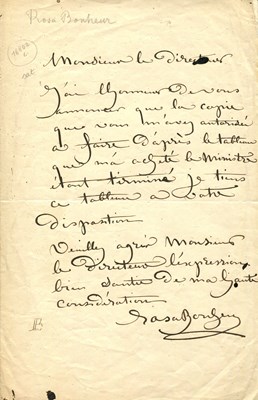 Rosa Bonheur
Monsieur le directeur
J'ai l'honneur de vous
annoncer que la copie
que vous m'avez autorisé
a faire d'après le tableau
que m'a acheté le Ministre
étant terminé je tiens
ce tableau a votre
disposition
Veuillez agréer Monsieur
le directeur l'expression
bien de ma haute
considération
Rosa Bonheur